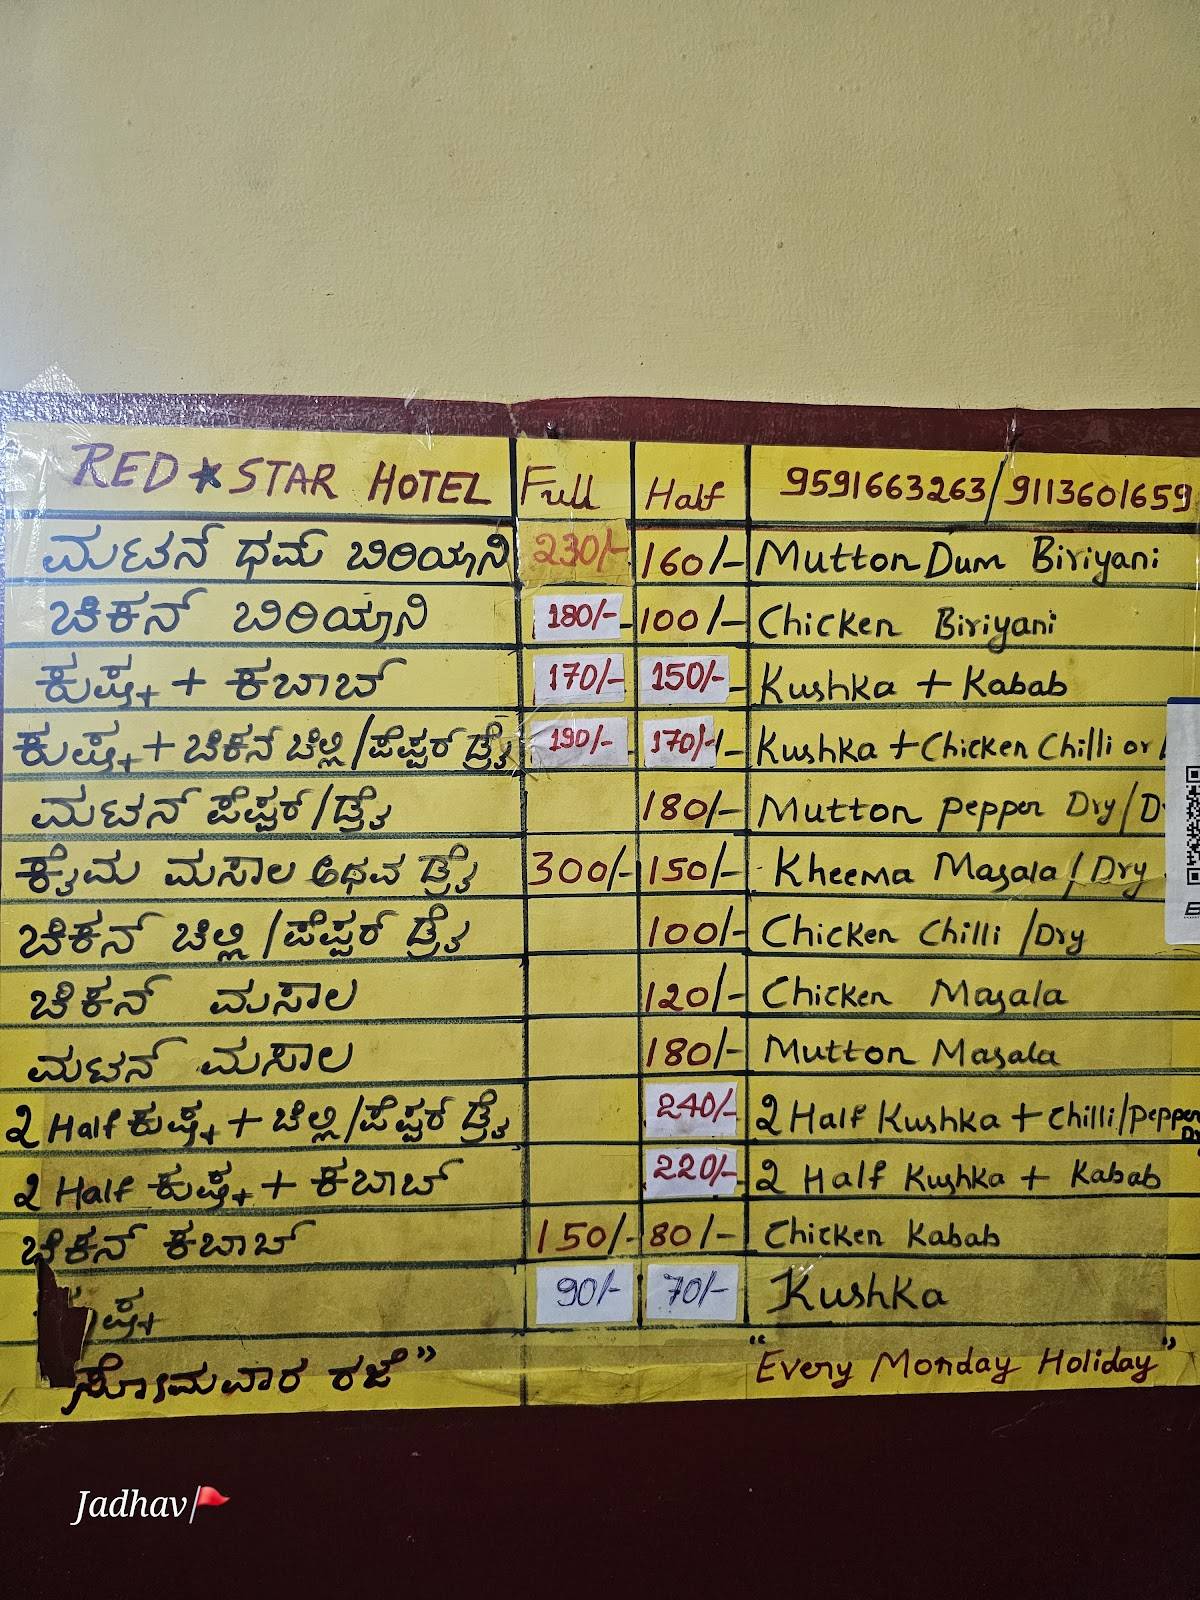 RED ★ STAR HOTEL Full Half 9591663263/9113601659
ಮಟನ್ ಧಮ್ ಬಿರಿಯಾನಿ 230/- 160/- Mutton Dum Biriyani
ಚಿಕನ್ ಬಿರಿಯಾನಿ 180/- 100/- Chicken Biriyani
ಕುಷ್ಕ + ಕಬಾಬ್ 170/- 150/- Kushka + Kabab
ಕುಷ್ಕ + ಚಿಕನ್ ಚಿಲ್ಲಿ/ಪೆಪ್ಪರ್ ಡ್ರೈ 190/- 170/- Kushka + Chicken Chilli or
ಮಟನ್ ಪೆಪ್ಪರ್/ಡ್ರೈ 180/- Mutton Pepper Dry/D
ಕೈಮ ಮಸಾಲ ಅಥವ ಡ್ರೈ 300/- 150/- Kheema Masala/Dry
ಚಿಕನ್ ಚಿಲ್ಲಿ/ಪೆಪ್ಪರ್ ಡ್ರೈ 100/- Chicken Chilli /Dry
ಚಿಕನ್ ಮಸಾಲ 120/- Chicken Masala
ಮಟನ್ ಮಸಾಲ 180/- Mutton Masala
2 Half ಕುಷ್ಕ + ಚಿಲ್ಲಿ/ಪೆಪ್ಪರ್ ಡ್ರೈ 240/- 2 Half Kushka + Chilli/Pepper Dr
2 Half ಕುಷ್ಕ + ಕಬಾಬ್ 220/- 2 Half Kushka + Kabab
ಚಿಕನ್ ಕಬಾಬ್ 150/- 80/- Chicken Kabab
ಕುಷ್ಕ 90/- 70/- Kushka
ಸೋಮವಾರ ರಜೆ" "Every Monday Holiday"
Jadhav